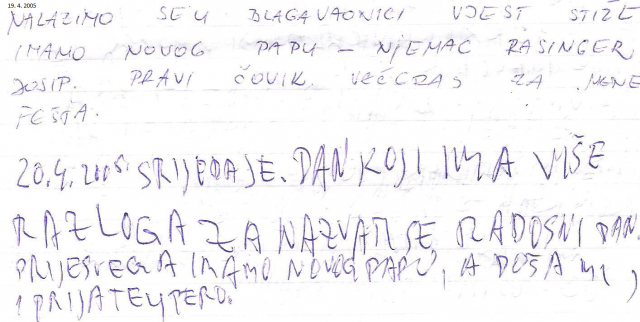 19. 4. 2005
NALAZIMO SE U BLAGAVAONICI VJEST STIŽE
IMAMO NOVOG PAPU - NJEMAC RASINGER
JOSIP. PRAVI ČOVIK. VEČERAS ZA MENE
FEŠTA.
20.4.2005. SRIJEDA JE. DAN KOJI IMA VIŠE
RAZLOGA ZA NAZVATI SE RADOSNI DAN.
PRIJE SVEGA IMAMO NOVOG PAPU, A DOŠA MI
I PRIJATELJ PERO.